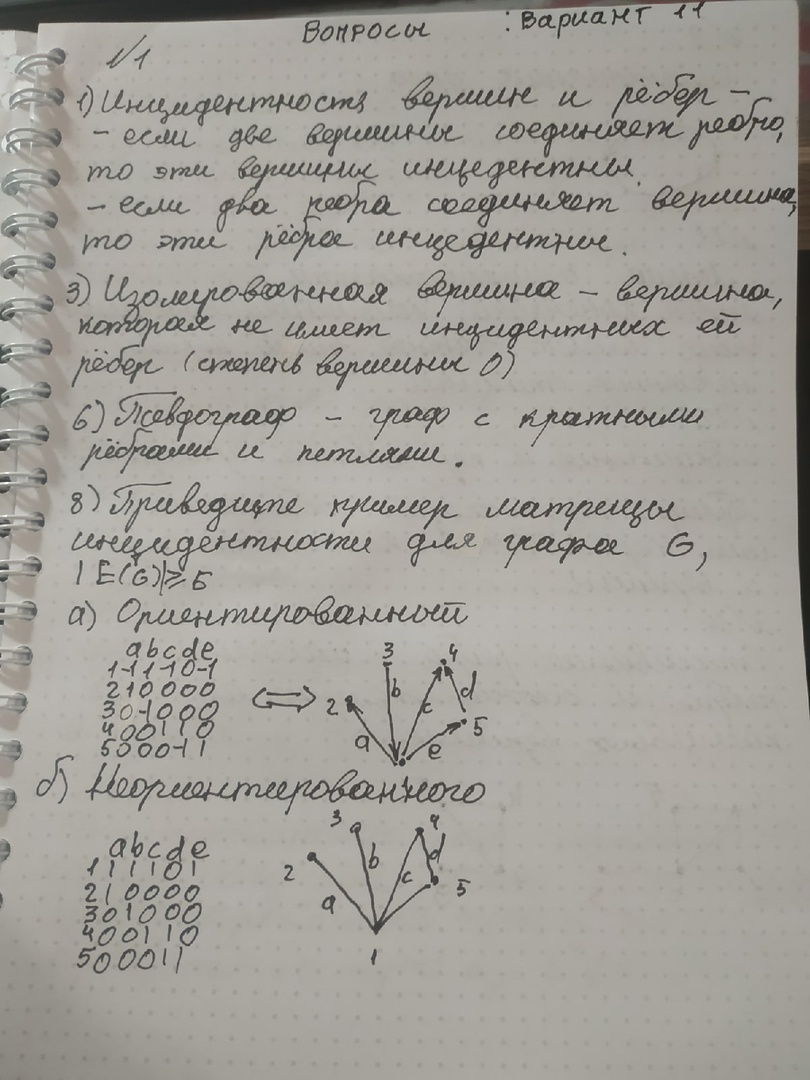 Вопросы : Вариант 11
№1
1) Инцидентность вершин и рёбер –
– если две вершины соединяет ребро,
то эти вершины инцедентны.
– если два ребра соединяет вершина,
то эти рёбра инцедентны.
3) Изолированная вершина – вершина,
которая не имеет инцидентных ей
рёбер (степень вершины 0)
6) Псевдограф – граф с кратными
рёбрами и петлями.
8) Приведите пример матрицы
инцидентности для графа G,
|E(G)|≥5
а) Ориентированный
a b c d e
1 -1 1 -1 0 -1
2 1 0 0 0 0
3 0 -1 0 0 0
4 0 0 1 1 0
5 0 0 0 -1 1
3 4
2 b c d
5
a e
б) Неориентированного
a b c d e
1 1 1 1 0 1
2 1 0 0 0 0
3 0 1 0 0 0
4 0 0 1 1 0
5 0 0 0 1 1
3 4
2 b c d 5
a
1